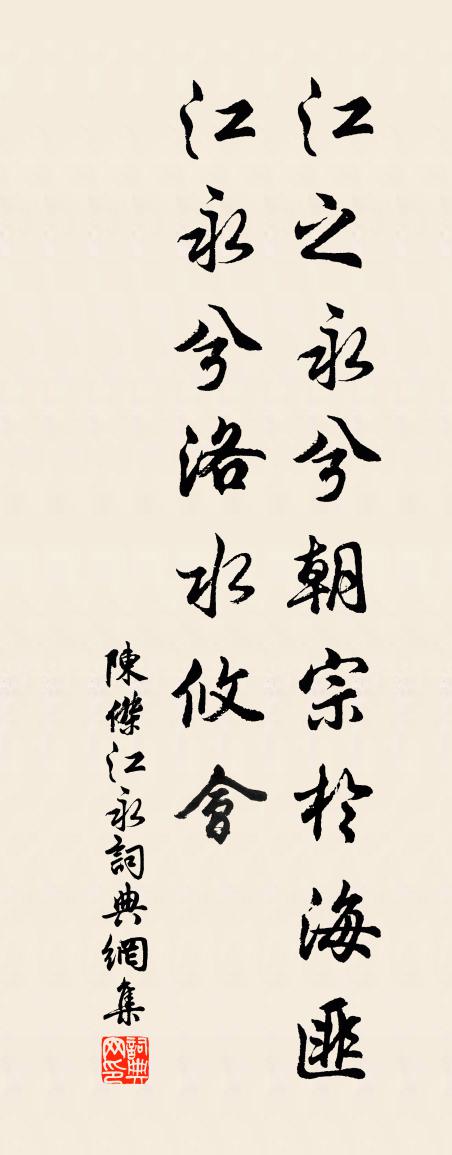 江之永兮朝宗於海匪
江永兮洛水攸會
陳傑江永詞典網集
詞典网印